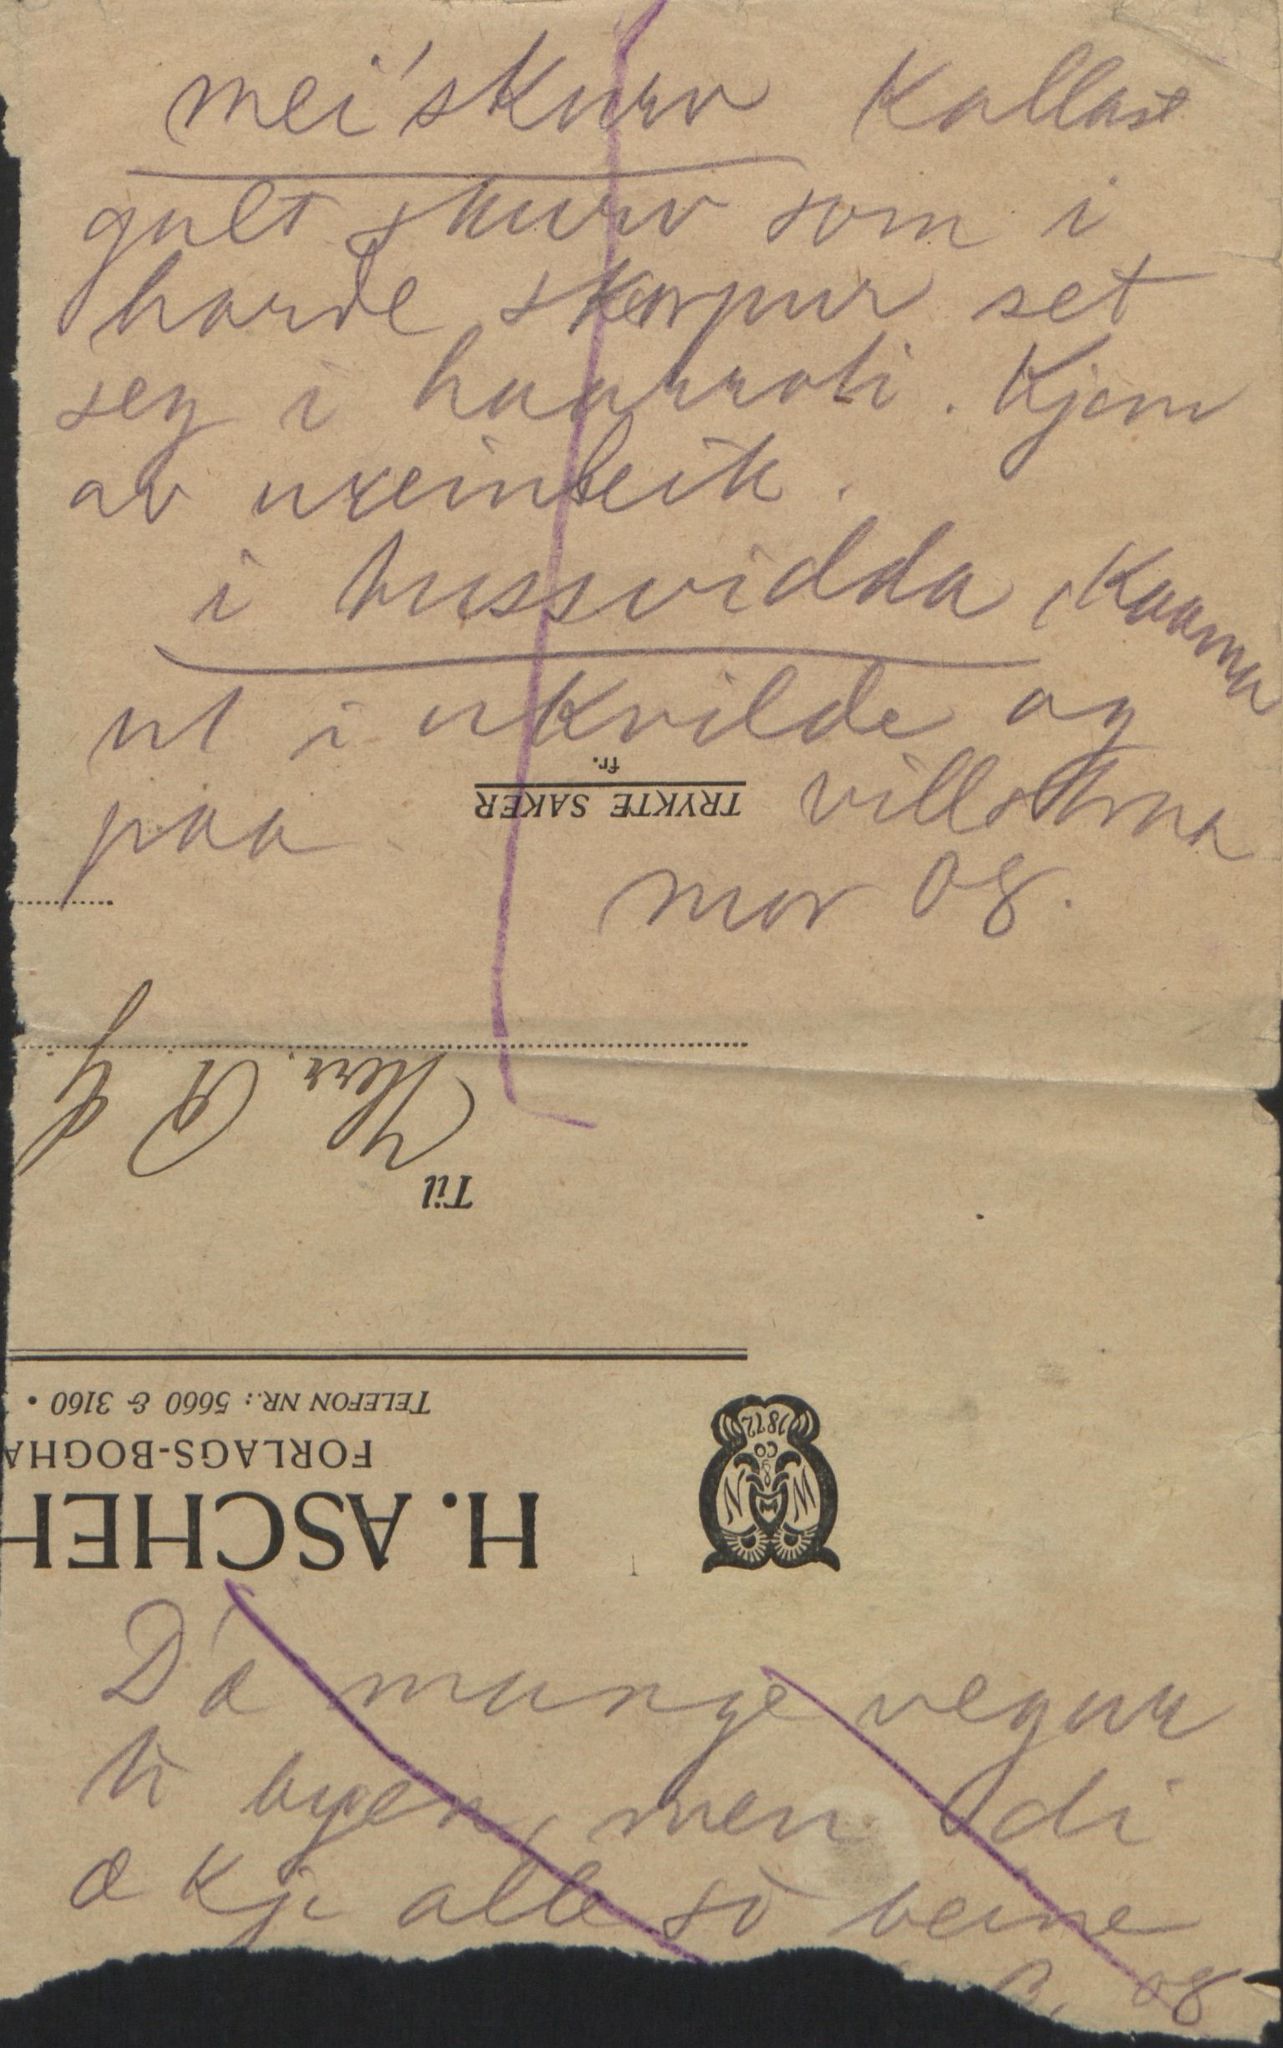 mei'skurv kallast
gult skurv som i
harde skorpur set
seg i haarroti. Kjem
av ureinleik.
i hussvidda, Kooma
ut i ukvilde og
paa villstraa
mor og.
TRYKTE SAKER
fr.
Til
Herr. A
H. ASCHEH
FORLAGS-BOGHA
TELEFON NR.: 5660 & 3160 •
1872
& CO
W N
D'æ mange vegar
ti byen, men di
æ kji alle so beine
og